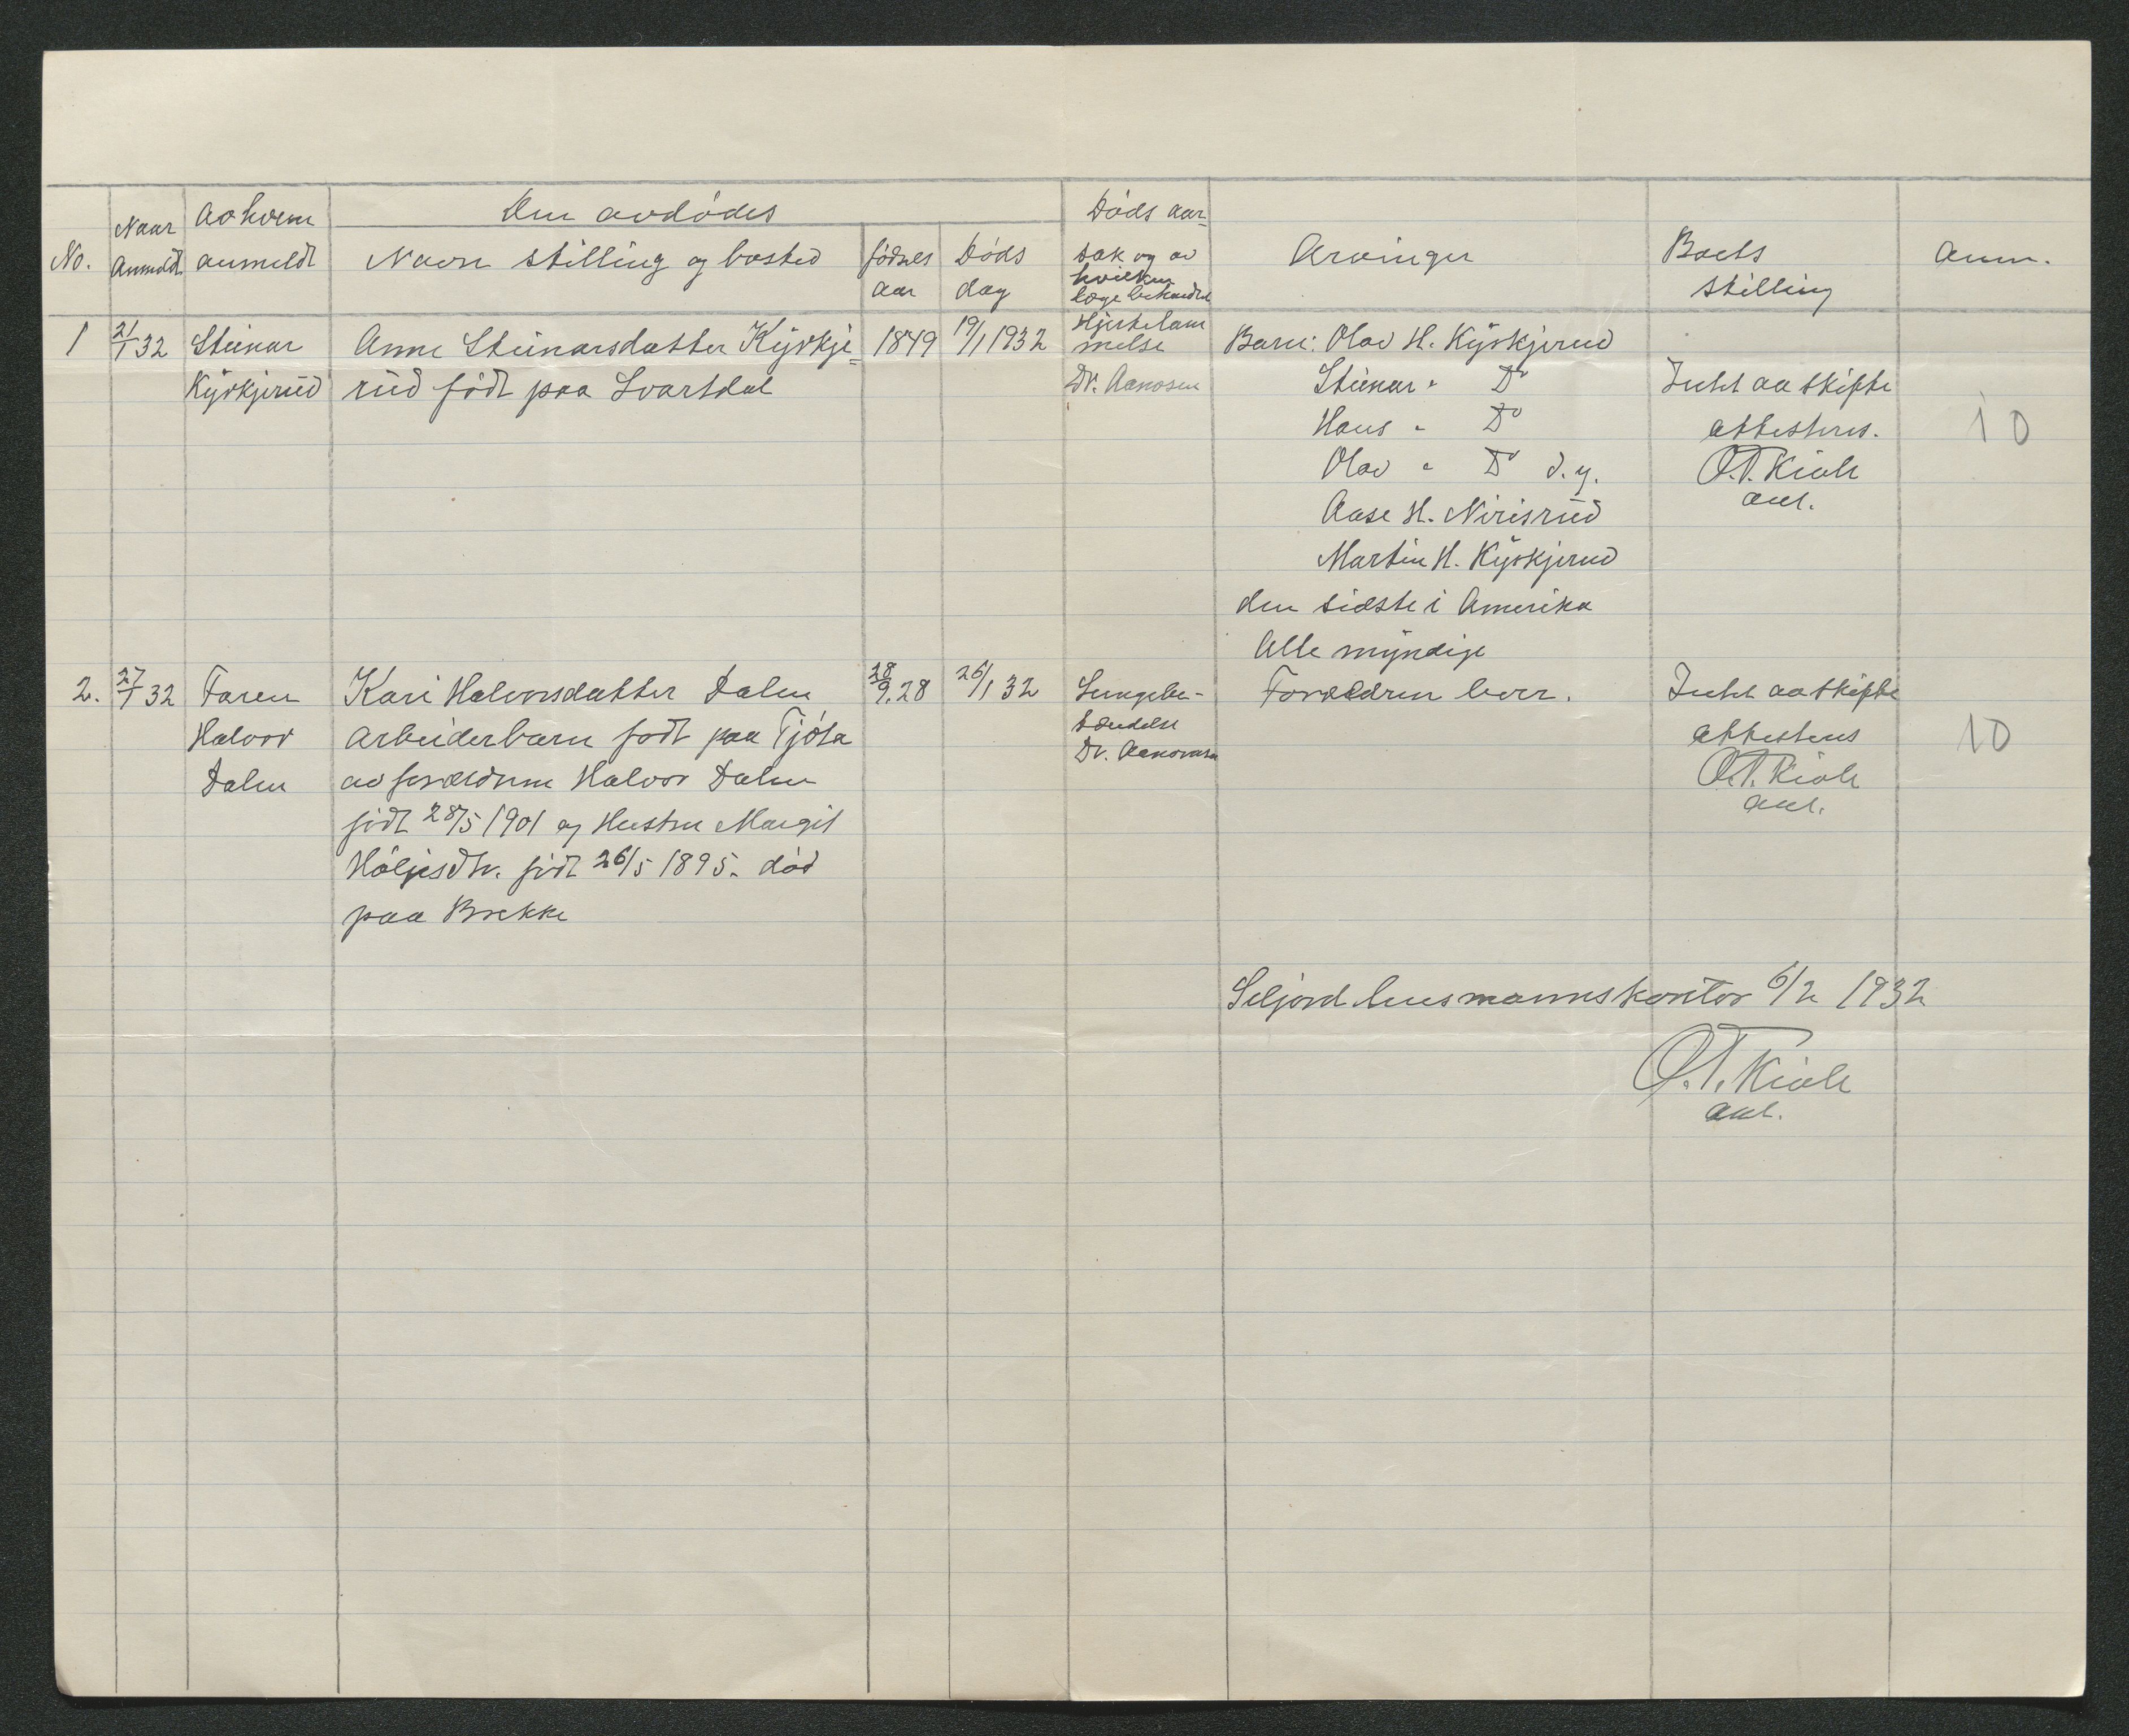 Den avdødes
No.
Naar
Anmeldt
Av hvem
anmeldt
Navn stilling og bosted
fødsels
aar
Døds
dag
Døds aar-
sak og av
hvilken
læge behandlet
Arvinger
Boets
stilling
Anm.
1
21/1 32
Steinar
Kyrkjerud
Anne Steinarsdatter Kyrkje-
rud født paa Svartdal
1849
19/1 1932
Hjertelam
melse
Dr. Aanosen
Barn: Olav H. Kyrkjerud
Steinar " Do
Hans " Do
Olav " Do d.y.
Aase H. Nirisrud
Martin H. Kyrkjerud
den sidste i Amerika
Alle myndige
Intet aa skifte
attesteres.
O.T. Kivle
10
2.
27/1 32
Faren
Halvor
Dalen
Kari Halvorsdatter Dalen
Arbeiderbarn født paa Tjösa
av forældrene Halvor Dalen
født 28/5 1901 og Hustru Margit
Höljesdtr. født 26/5 1895. død
paa Brekke
28/9.28
26/1 32
Lungebe-
tændelse
Dr. Aanosen
Forældrene lever.
Intet aa skifte
attesteres
O.T. Kivle
10
Seljord lensmannskontor 6/2 1932
O.T. Kivle